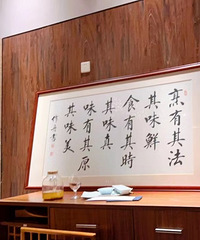 烹有其法
其味鲜
食有其時
其味真
味有其原
其味美